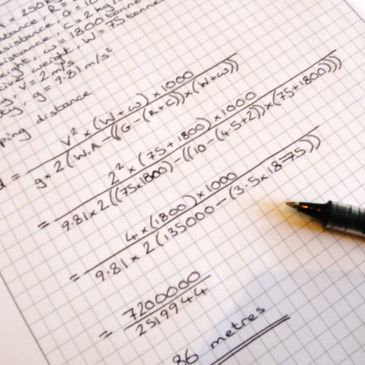 = 250
stance, R =
sistance, C = 2 kg
eight, w = 1800 tonne
weight, W = 75 tonne
v = 2 m/s
g = 9.81 m/s²
ping distance
d = V² × (W+w) × 1000
g × 2 (W.A – ((G – (R+C)) × (W+w))
= 2² × (75+1800) × 1000
9.81 × 2 ((75×1800) – ((10 – (4.5+2)) × (75+1800)))
= 4 × (1800) × 1000
9.81 × 2 (135000 – (3.5 × 1875))
= 7200000
2519944
86 metres